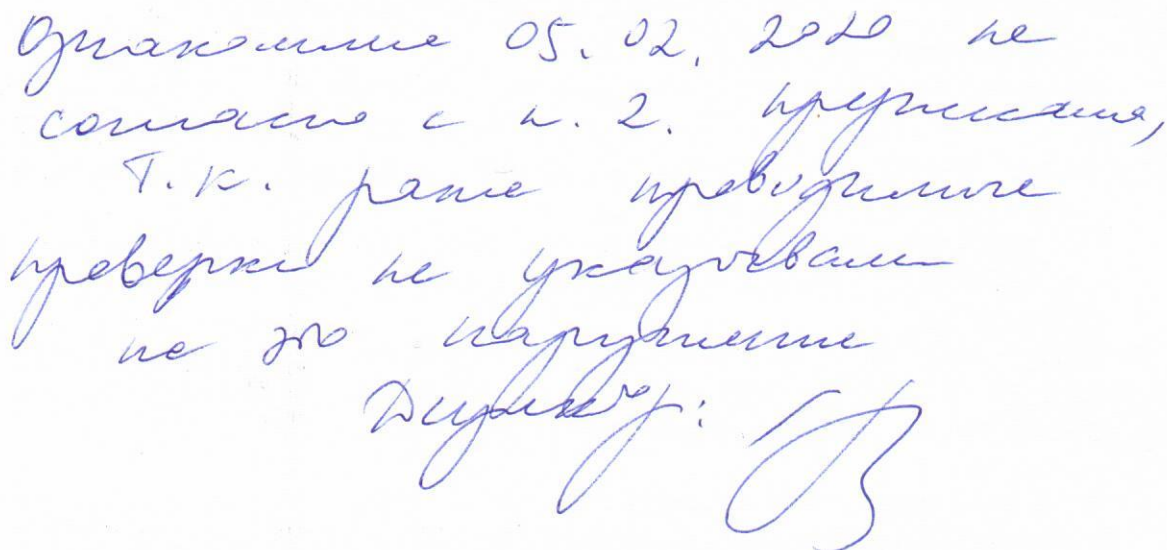 Ознакомлена 05.02.2020 не
согласна с п. 2. предписания,
т.к. ранее проводимые
проверки не указывали
на это нарушение
Директор: